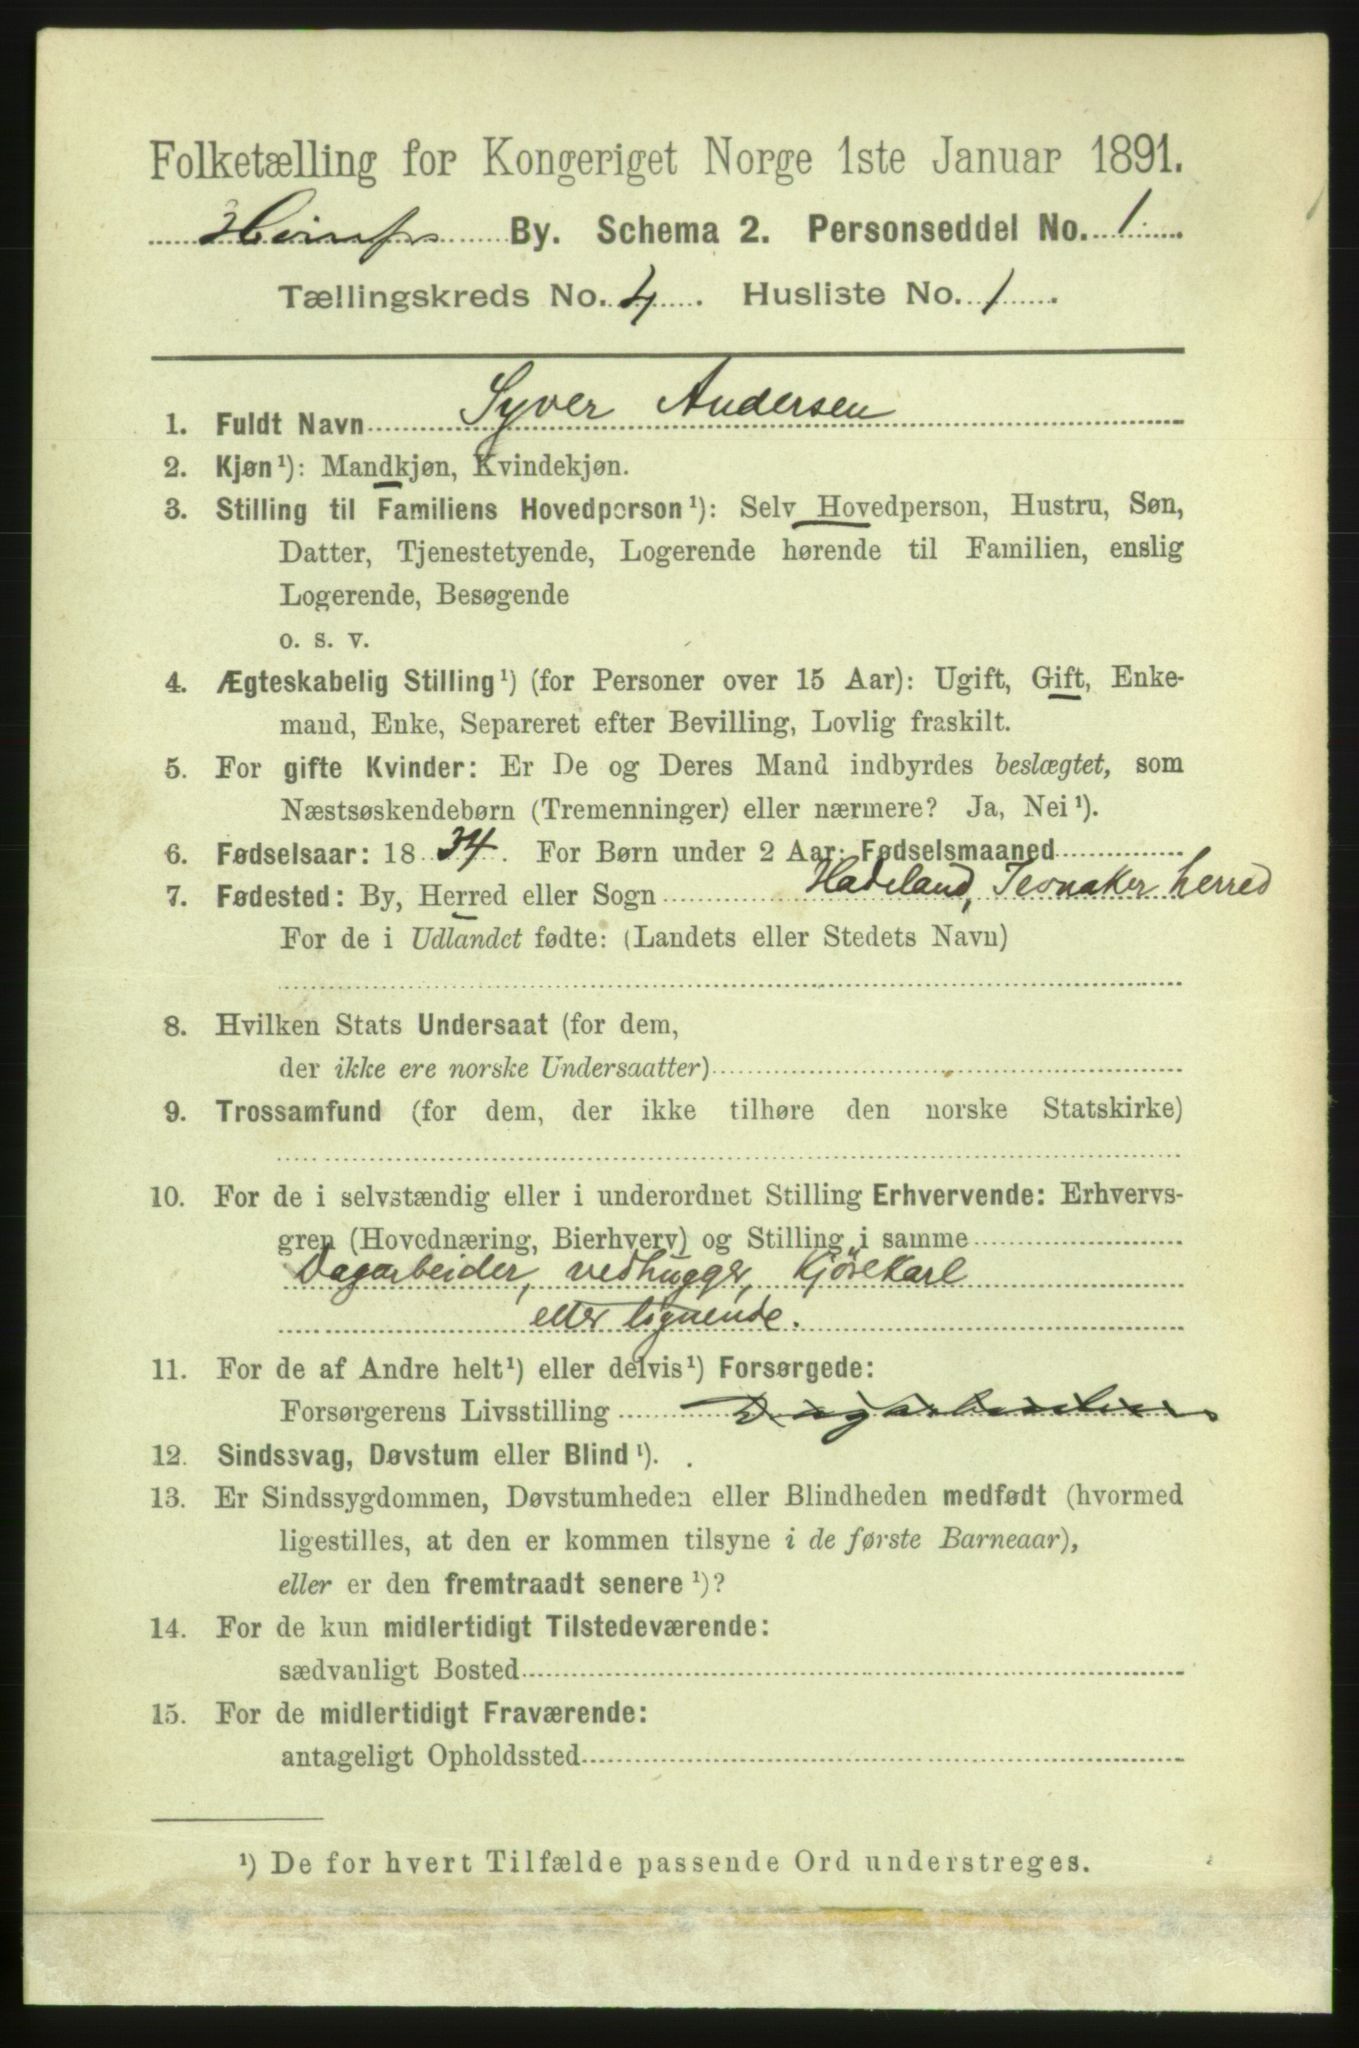 Folketælling for Kongeriget Norge 1ste Januar 1891.
By. Schema 2. Personseddel No. 1
Tællingskreds No. 4. Husliste No. 1
1. Fuldt Navn Syver Andersen
2. Kjøn¹): Mandkjøn, Kvindekjøn.
3. Stilling til Familiens Hovedperson¹): Selv Hovedperson, Hustru, Søn,
Datter, Tjenestetyende, Logerende hørende til Familien, enslig
Logerende, Besøgende
o. s. v.
4. Ægteskabelig Stilling¹) (for Personer over 15 Aar): Ugift, Gift, Enke-
mand, Enke, Separeret efter Bevilling, Lovlig fraskilt.
5. For gifte Kvinder: Er De og Deres Mand indbyrdes beslægtet, som
Næstsøskendebørn (Tremenninger) eller nærmere? Ja, Nei¹).
6. Fødselsaar: 1834. For Børn under 2 Aar: Fødselsmaaned
7. Fødested: By, Herred eller Sogn Hadeland, Jevnaker herred
For de i Udlandet fødte: (Landets eller Stedets Navn)
8. Hvilken Stats Undersaat (for dem,
der ikke ere norske Undersaatter)
9. Trossamfund (for dem, der ikke tilhøre den norske Statskirke)
10. For de i selvstændig eller i underordnet Stilling Erhvervende: Erhvervs-
gren (Hovednæring, Bierhverv) og Stilling i samme
Dagarbeider, vedhugger, Kjørekarl
eller lignende.
11. For de af Andre helt¹) eller delvis¹) Forsørgede:
Forsørgerens Livsstilling
12. Sindssvag, Døvstum eller Blind¹).
13. Er Sindssygdommen, Døvstumheden eller Blindheden medfødt (hvormed
ligestilles, at den er kommen tilsyne i de første Barneaar),
eller er den fremtraadt senere¹)?
14. For de kun midlertidigt Tilstedeværende:
sædvanligt Bosted
15. For de midlertidigt Fraværende:
antageligt Opholdssted
¹) De for hvert Tilfælde passende Ord understreges.